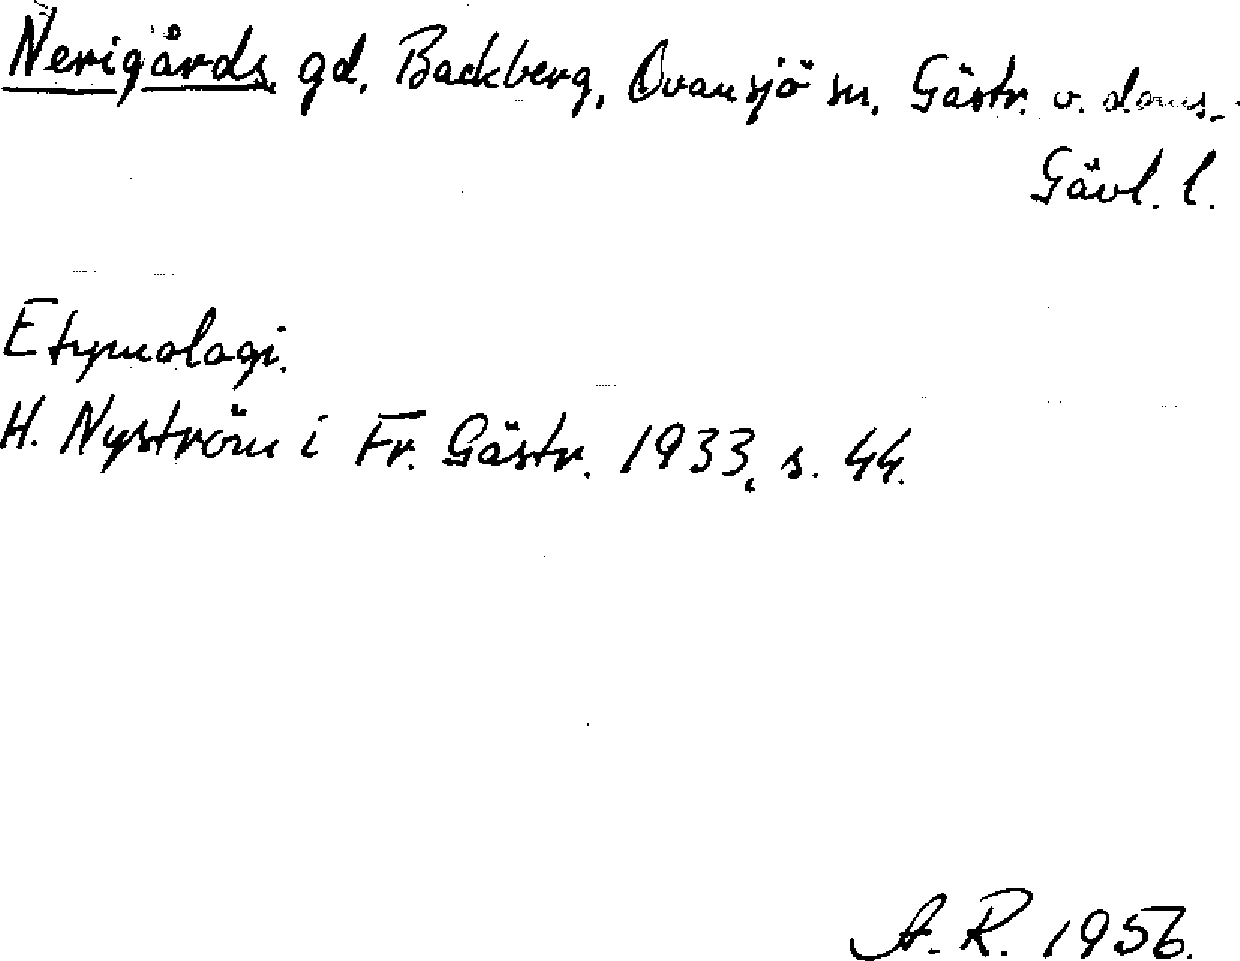 Nerigårds, gd, Backberg, Ovansjö sn, Gästr. v. doms.
Gävl. l.
Etymologi.
H. Nyström i Fr. Gästr. 1933, s. 44.
A. R. 1956.